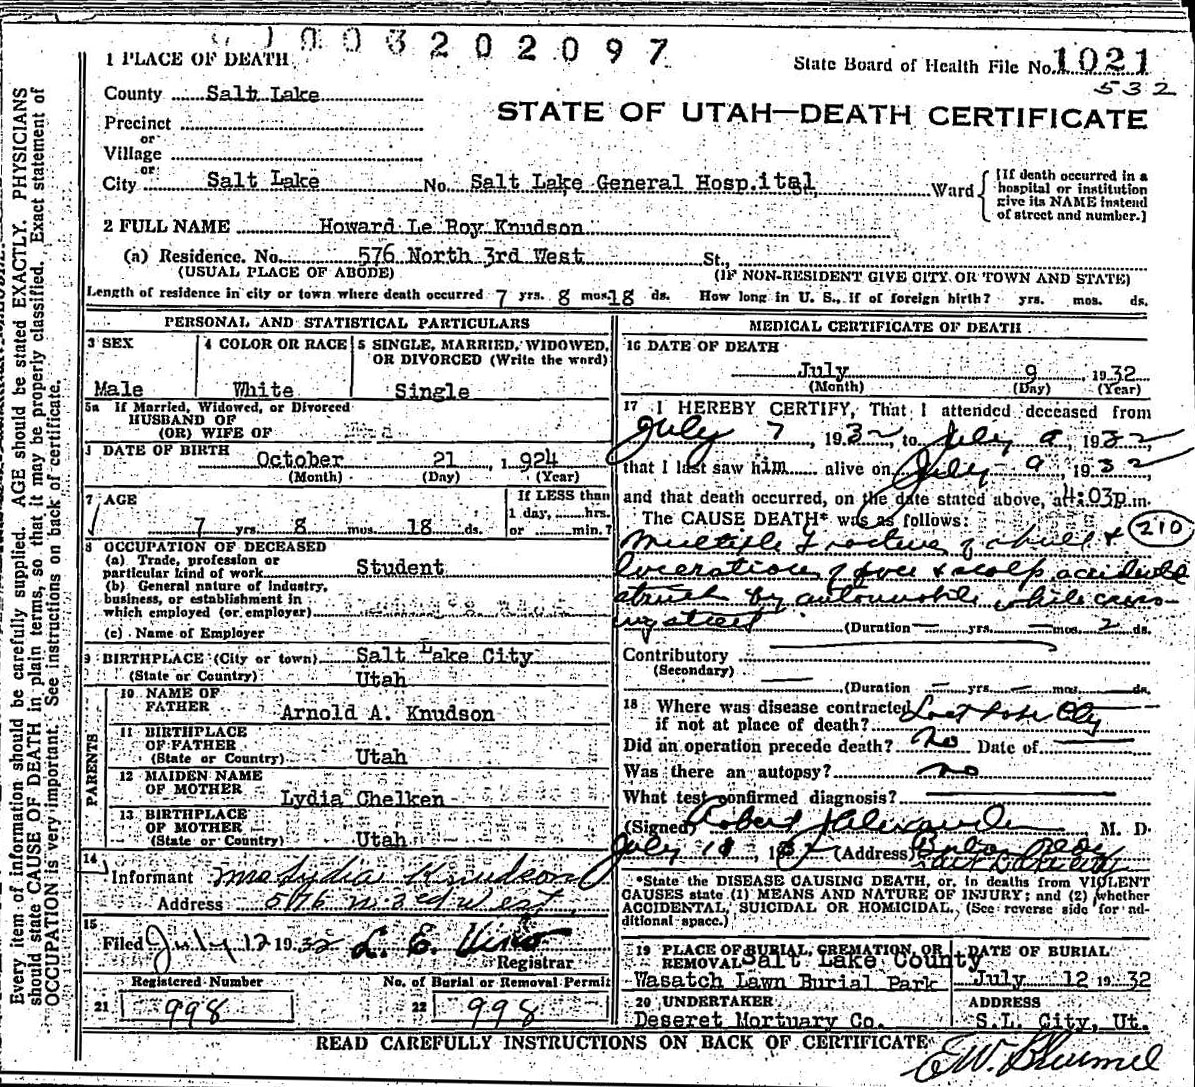 003202097
1 PLACE OF DEATH
State Board of Health File No. 1021
532
County Salt Lake
STATE OF UTAH—DEATH CERTIFICATE
Precinct
or
Village
or
City Salt Lake No. Salt Lake General Hospital Ward
[If death occurred in a hospital or institution give its NAME instead of street and number.]
2 FULL NAME Howard Le Roy Knudson
(a) Residence. No. 576 North 3rd West St.,
(USUAL PLACE OF ABODE) (IF NON-RESIDENT GIVE CITY OR TOWN AND STATE)
Length of residence in city or town where death occurred 7 yrs. 8 mos. 18 ds. How long in U. S., if of foreign birth? yrs. mos. ds.
PERSONAL AND STATISTICAL PARTICULARS
3 SEX
Male
4 COLOR OR RACE
White
5 SINGLE, MARRIED, WIDOWED,
OR DIVORCED (Write the word)
Single
5a If Married, Widowed, or Divorced
HUSBAND OF
(OR) WIFE OF
DATE OF BIRTH October 21, 1924
(Month) (Day) (Year)
7 AGE
7 yrs. 8 mos. 18 ds.
If LESS than
1 day, hrs.
or min.?
8 OCCUPATION OF DECEASED
(a) Trade, profession or
particular kind of work Student
(b) General nature of industry,
business, or establishment in
which employed (or employer)
(c) Name of Employer
9 BIRTHPLACE (City or town) Salt Lake City
(State or Country) Utah
PARENTS
10 NAME OF
FATHER Arnold A. Knudson
11 BIRTHPLACE
OF FATHER
(State or Country) Utah
12 MAIDEN NAME
OF MOTHER Lydia Chelken
13 BIRTHPLACE
OF MOTHER
(State or Country) Utah
14
Informant Mrs Lydia Knudson
Address 576 N. 3rd West
15
Filed July 12 1932 L. E. Vino
Registrar
Registered Number
21 998
No. of Burial or Removal Permit
22 998
MEDICAL CERTIFICATE OF DEATH
16 DATE OF DEATH
July 9, 1932
(Month) (Day) (Year)
17 I HEREBY CERTIFY, That I attended deceased from
July 7, 1932 to July 9, 1932
that I last saw him alive on July 9, 1932
and that death occurred, on the date stated above, at 4:03p.m.
The CAUSE DEATH* was as follows:
210
Multiple Fracture of skull &
lacerations of face & scalp accidental
struck by automobile while cross-
ing street
(Duration — yrs. — mos. 2 ds.
Contributory
(Secondary)
(Duration — yrs. — mos. ds.
18 Where was disease contracted
if not at place of death? Salt Lake City
Did an operation precede death? No Date of
Was there an autopsy? no
What test confirmed diagnosis?
(Signed) Robert Alexander M. D.
July 11, 1932 (Address)
*State the DISEASE CAUSING DEATH, or, in deaths from VIOLENT
CAUSES state (1) MEANS AND NATURE OF INJURY; and (2) whether
ACCIDENTAL, SUICIDAL OR HOMICIDAL. (See reverse side for ad-
ditional space.)
19 PLACE OF BURIAL, CREMATION, OR
REMOVAL Salt Lake County
Wasatch Lawn Burial Park
DATE OF BURIAL
July 12 1932
20 UNDERTAKER
Deseret Mortuary Co.
ADDRESS
S.L. City, Ut.
READ CAREFULLY INSTRUCTIONS ON BACK OF CERTIFICATE
Every item of information should be carefully supplied. AGE should be stated EXACTLY. PHYSICIANS
should state CAUSE OF DEATH in plain terms, so that it may be properly classified. Exact statement of
OCCUPATION is very important. See instructions on back of certificate.